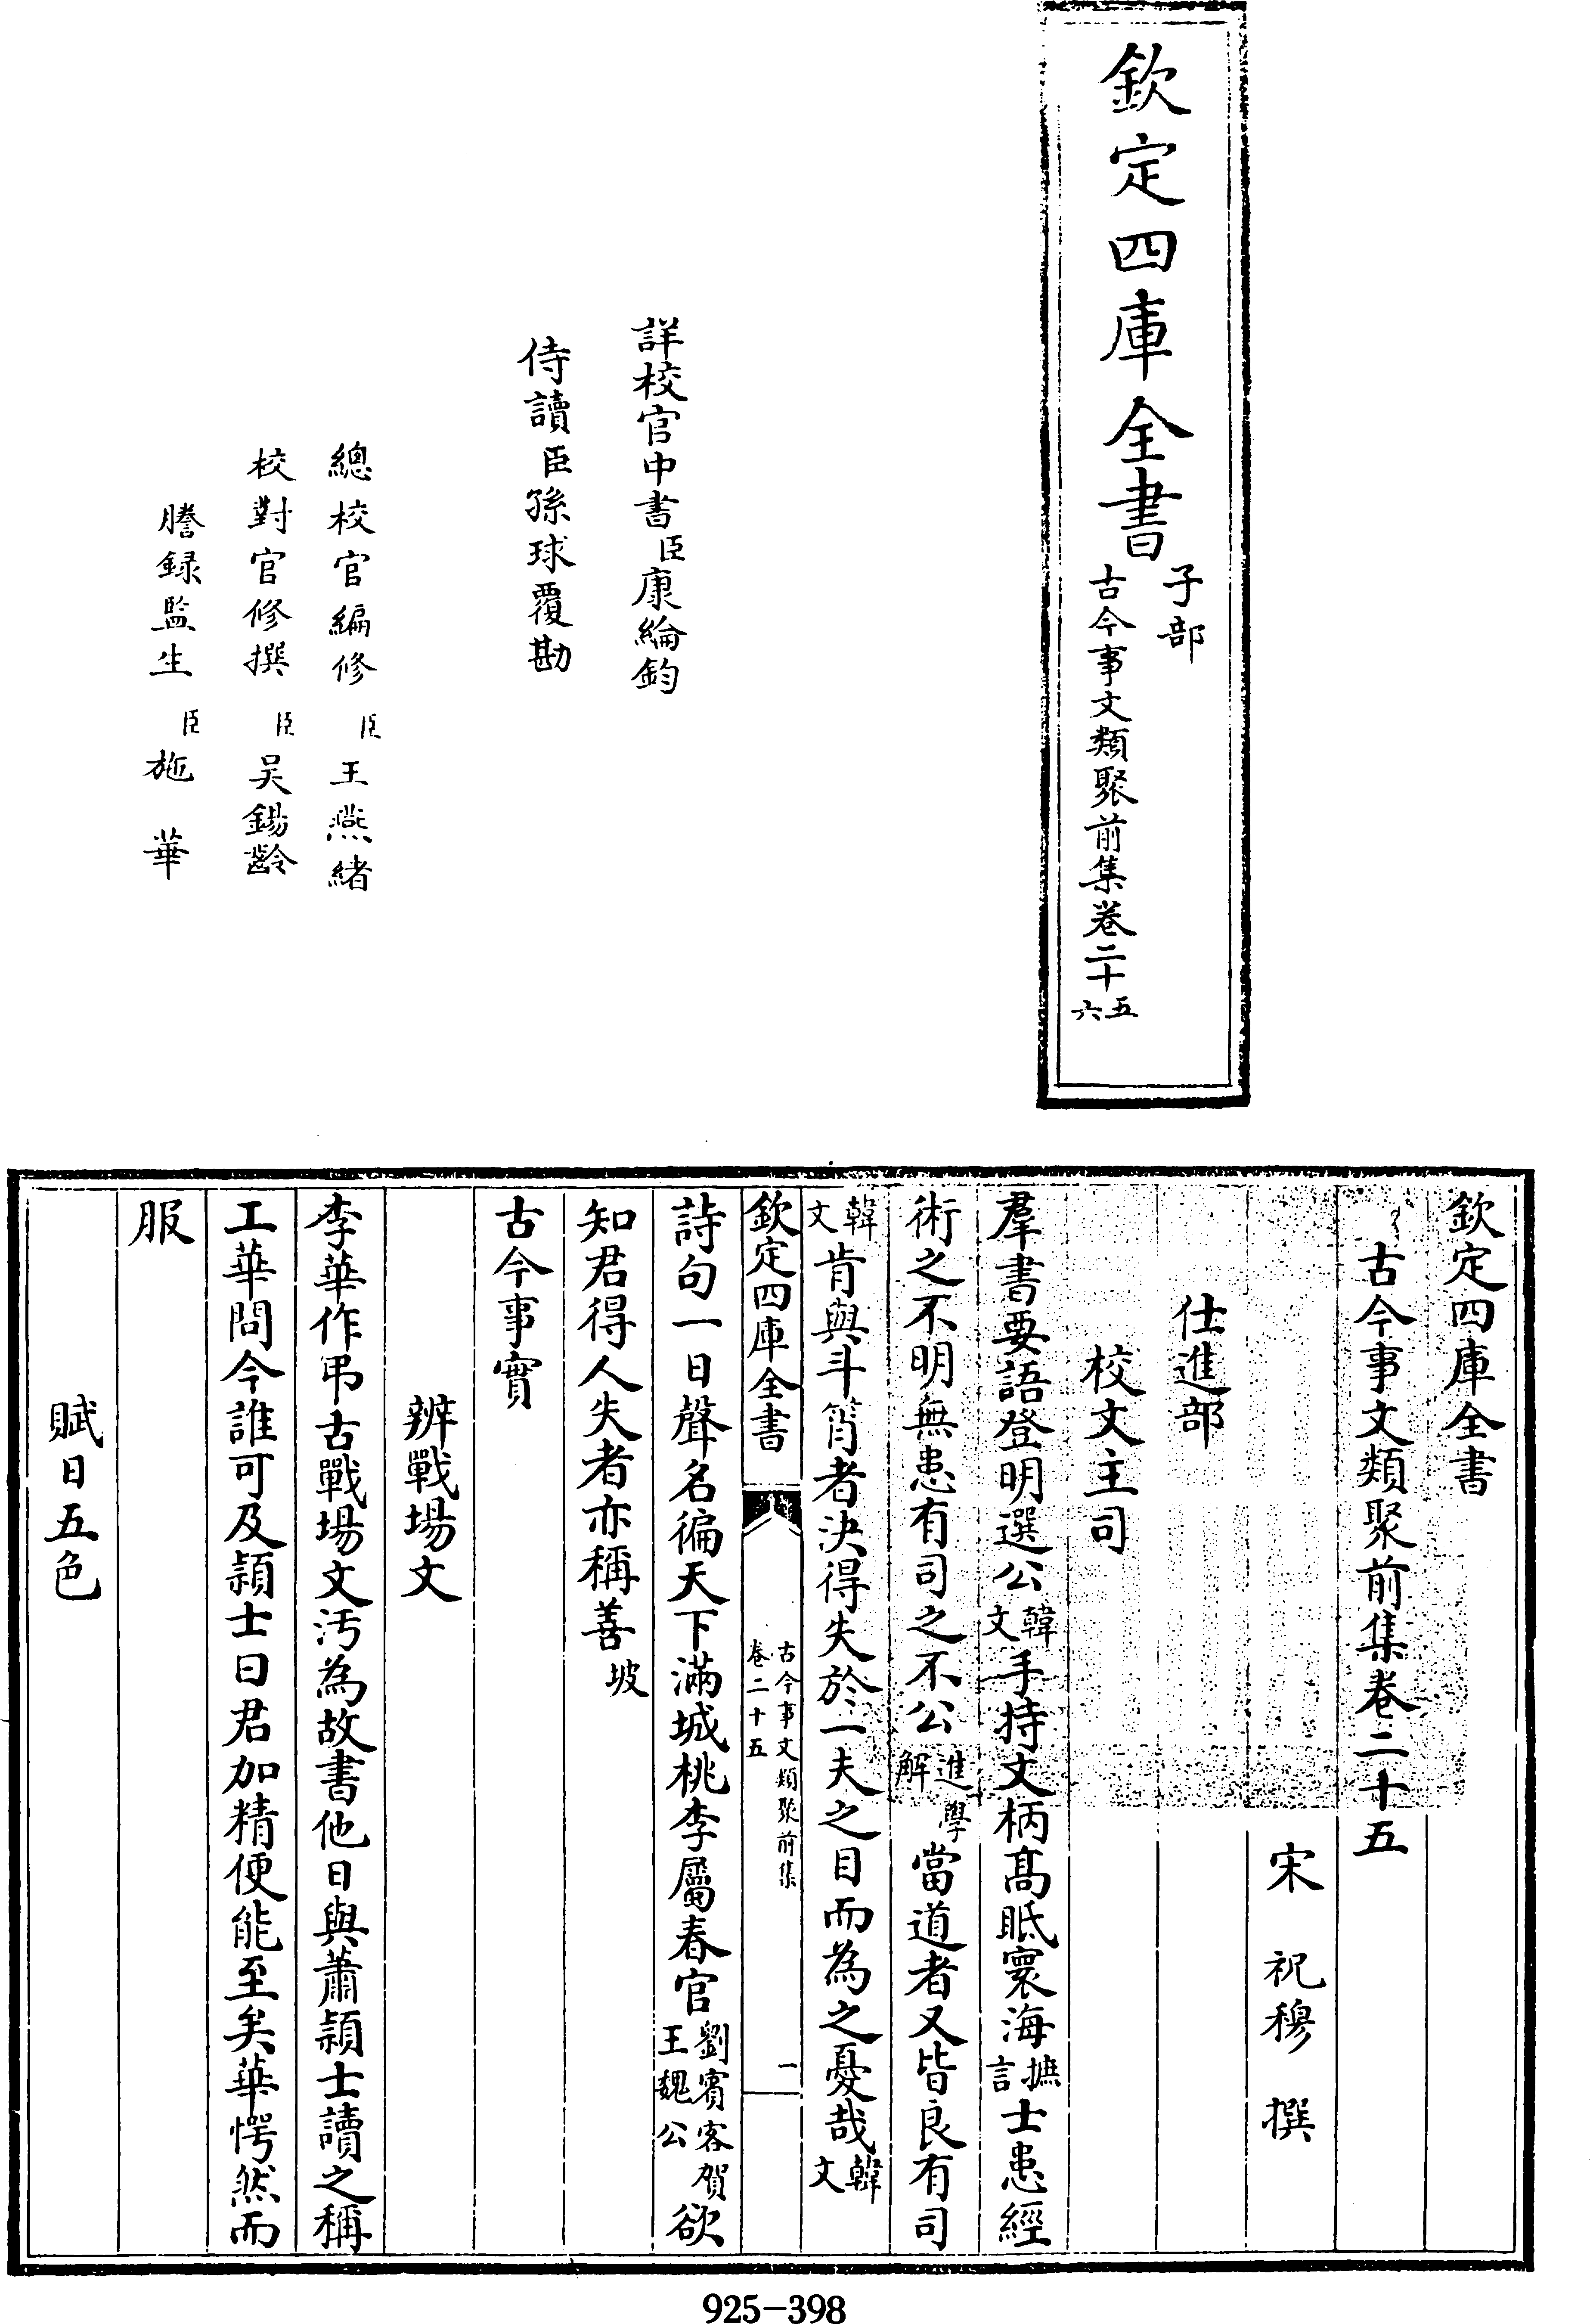 欽定四庫全書
子部
古今事文類聚前集卷二十五六
詳校官中書臣康綸鈞
侍讀臣孫球覆勘
總校官編修臣王燕緒
校對官修撰臣吴錫齡
謄録監生臣施華
欽定四庫全書
古今事文類聚前集卷二十五
宋祝穆撰
仕進部
校文主司
羣書要語登明選公韓文手持文柄髙眡寰海摭言士患經
術之不明無患有司之不公進學解當道者又皆良有司
韓文肯與斗筲者決得失於一夫之目而為之憂哉韓文
欽定四庫全書
古今事文類聚前集
卷二十五
一
詩句一日聲名徧天下滿城桃李屬春官劉賓客賀王魏公欲
知君得人失者亦稱善坡
古今事實
辨戰場文
李華作弔古戰場文汚為故書他日與蕭頴士讀之稱
工華問今誰可及頴士曰君加精便能至矣華愕然而
服
賦日五色
925-398